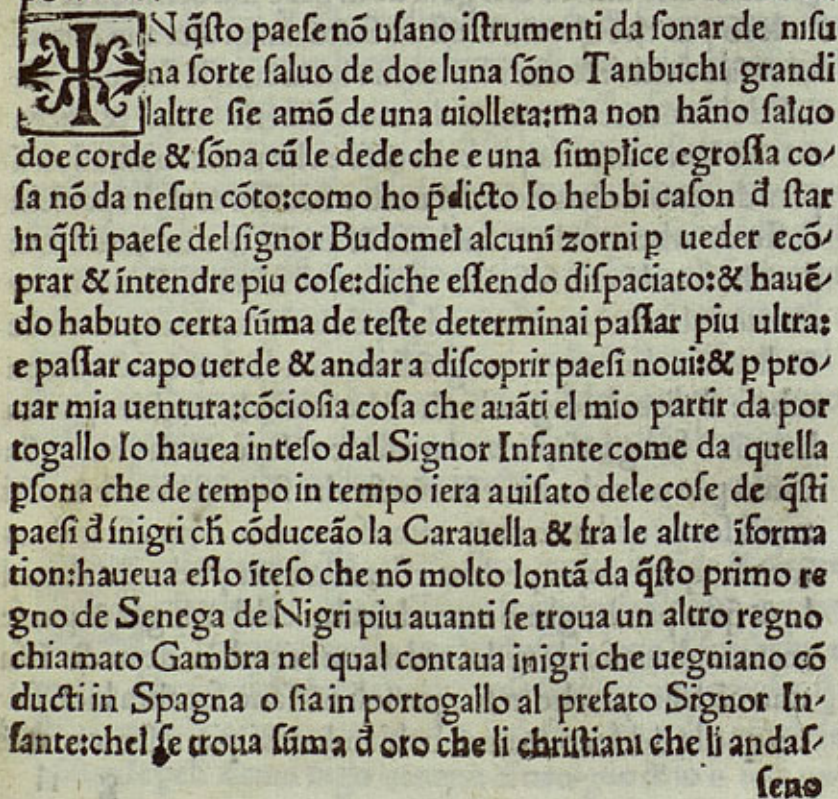 IN q̄ſto paeſe nō uſano iſtrumenti da ſonar de niſu
na ſorte ſaluo de doe luna ſōno Tanbuchi grandi
laltre ſie amō de una uiolleta:ma non hāno ſaluo
doe corde & ſōna cū le dede che e una ſimplice egroſſa co⸗
ſa nō da neſun cōto:como ho p̄dicto Io hebbi caſon đ ſtar
In q̄ſti paeſe del ſignor Budomel alcuni zorni ꝑ ueder ecō⸗
prar & intendre piu coſe:diche eſſendo diſpaciato:& hauē⸗
do habuto certa ſūma de teſte determinai paſſar piu ultra:
e paſſar capo uerde & andar a diſcoprir paeſi noui:& ꝑ pro⸗
uar mia uentura:cōcioſia coſa che auāti el mio partir da por
togallo Io hauea inteſo dal Signor Infante come da quella
ꝑſona che de tempo in tempo iera auiſato dele coſe de q̄ſti
paeſi đ inigri cħ cōduceāo la Carauella & fra le altre īforma
tion:haueua eſſo īteſo che nō molto lontā da q̄ſto primo re
gno de Senega de Nigri piu auanti ſe troua un altro regno
chiamato Gambra nel qual contaua inigri che uegniano cō
ducti in Spagna o ſia in portogallo al prefato Signor In⸗
fante:chel ſe troua ſūma đ oro che li chriſtiani che li andaſ⸗
ſeno